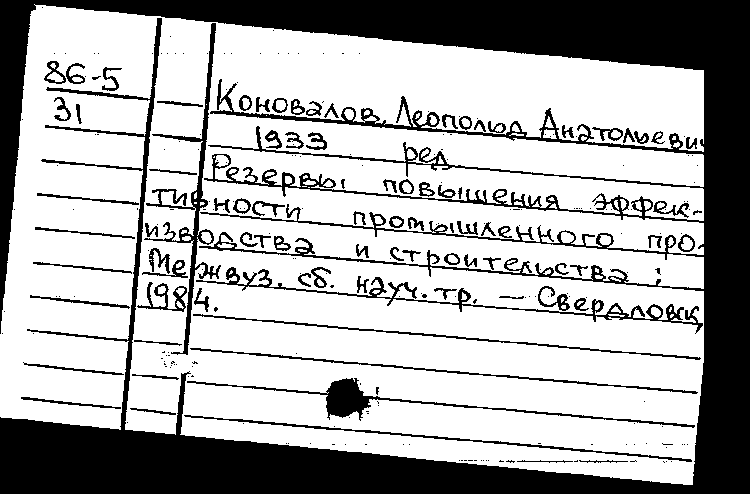 86-5
31
Коновалов, Леопольд Анатольевич
1933 ред
Резервы повышения эффек-
тивности промышленного про-
изводства и строительства :
Межвуз. сб. науч. тр. — Свердловск,
1984.